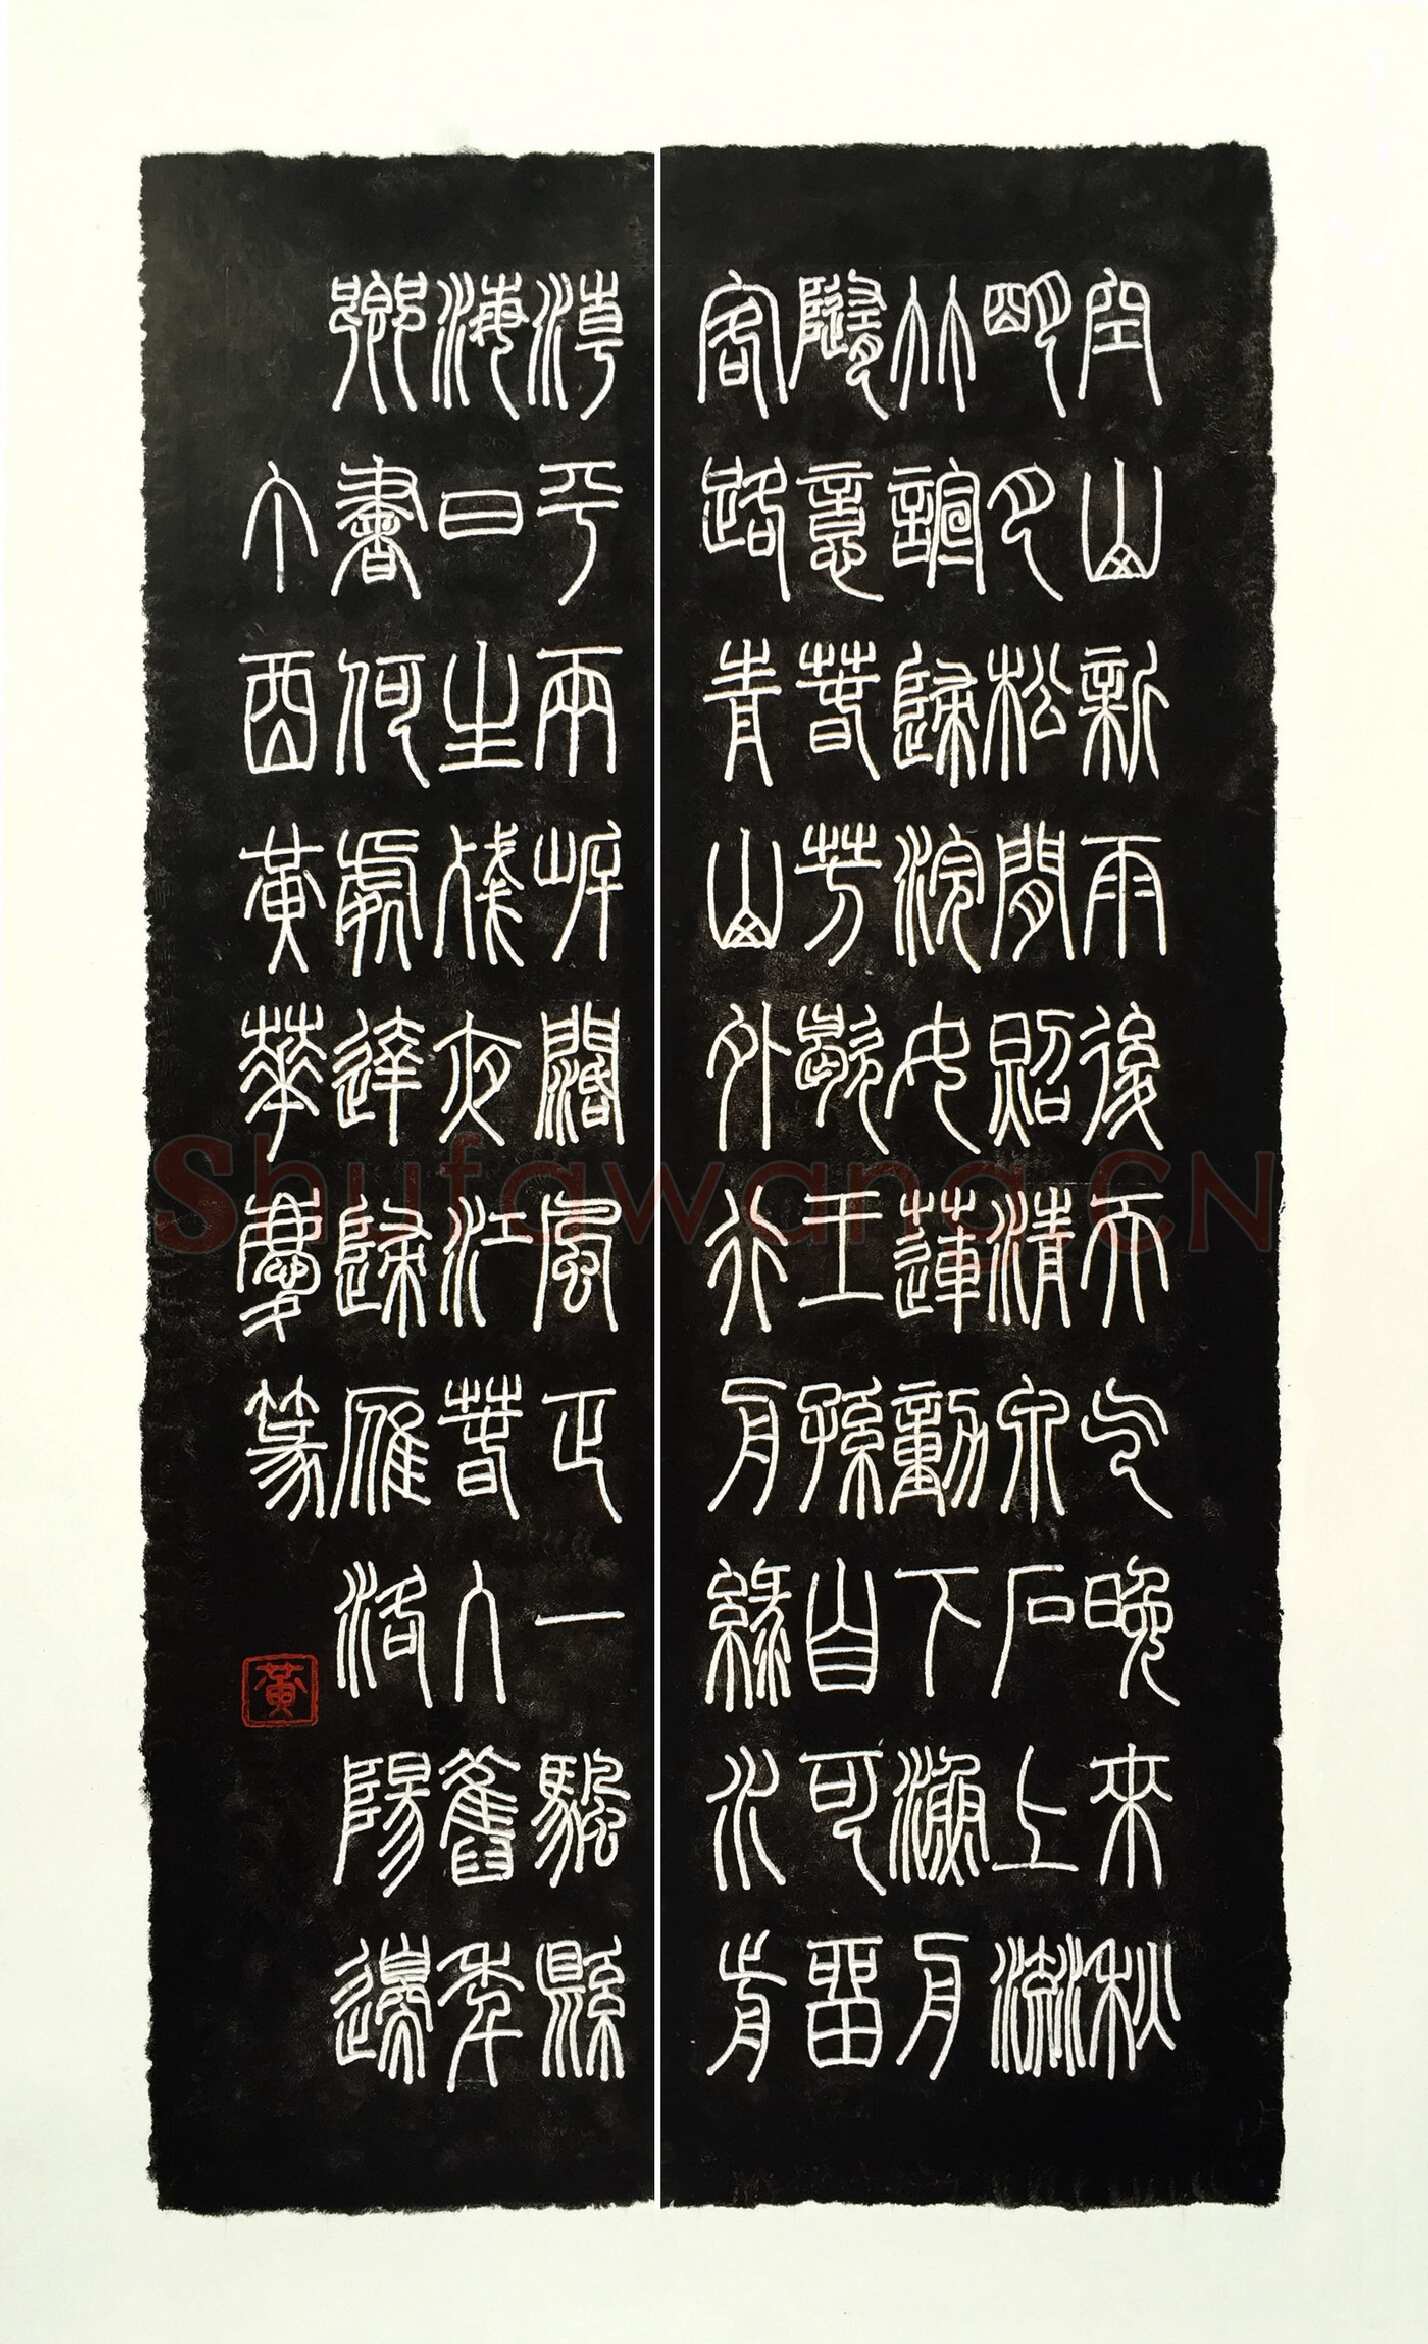 空山新雨後天气晚來秋
明月松間照清泉石上流
竹諠歸浣女蓮動下漁舟
隨意春芳歇王孫自可留
客路青山外行舟綠水前
潮平兩岸闊風正一颿懸
海日生殘夜江春入舊年
鄉書何處達歸雁洛陽邊
丁酉黃華慶篆
黃
Shufawang.CN